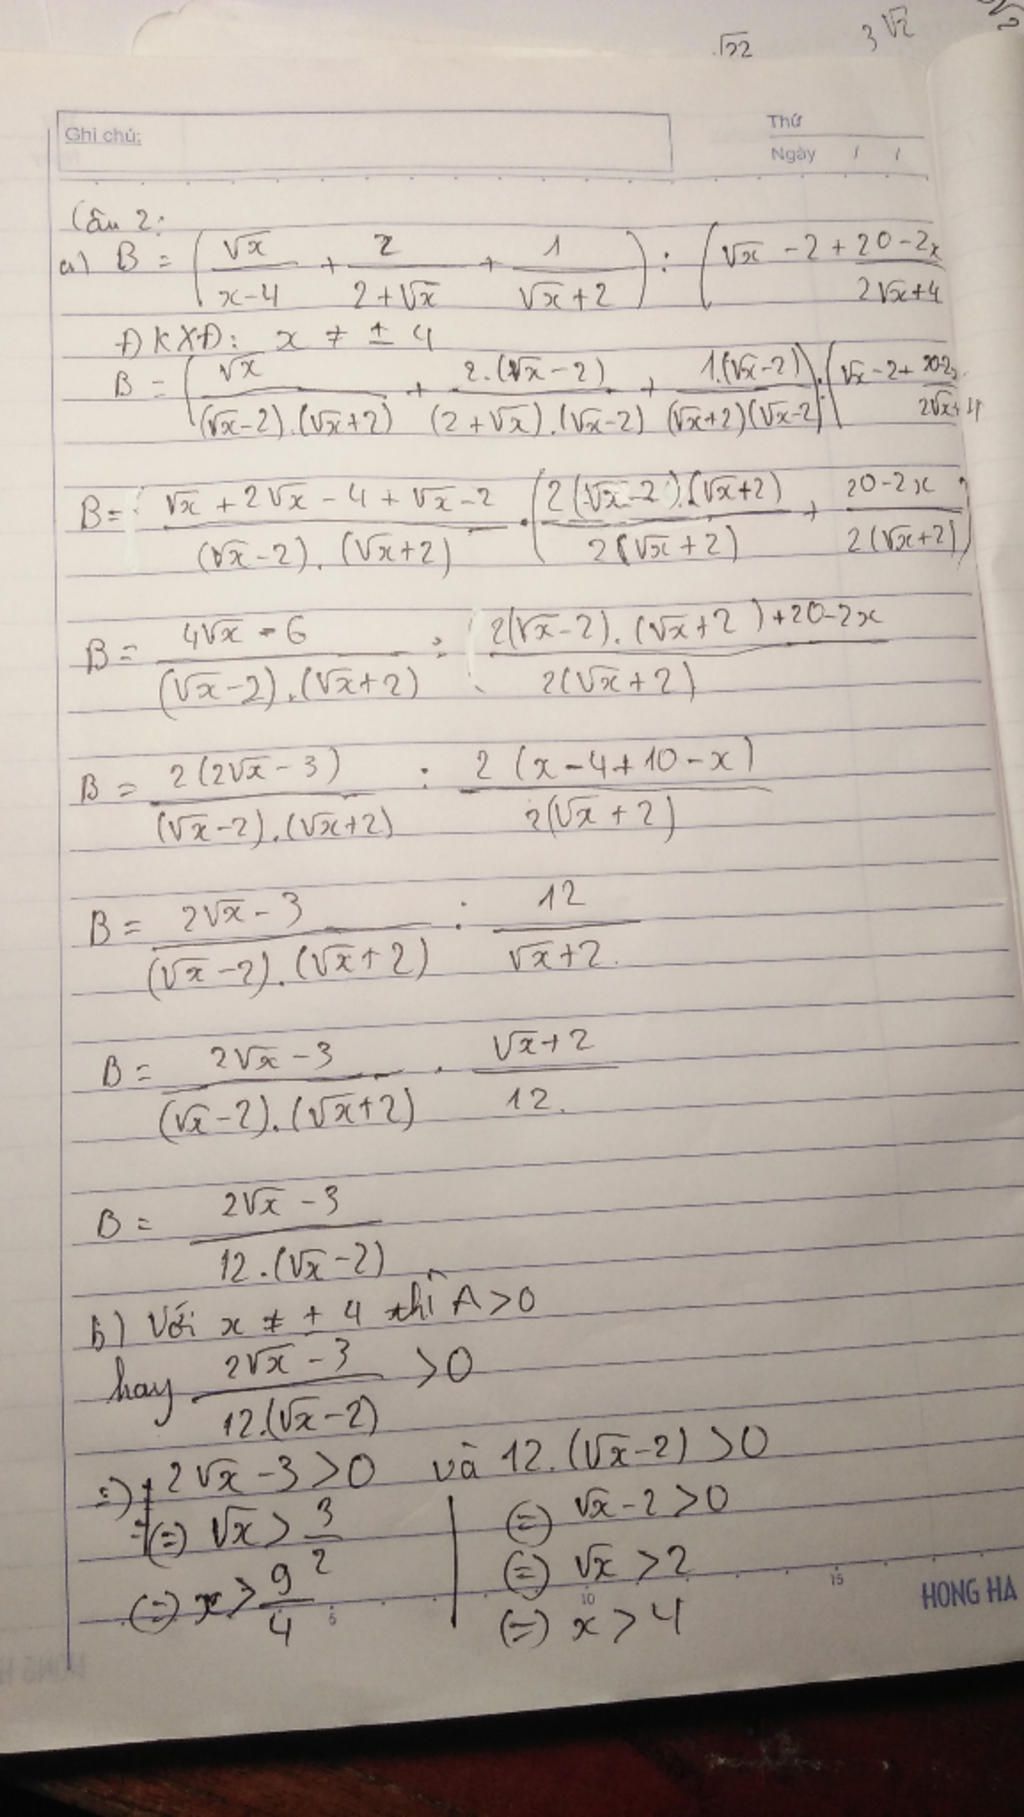 √22 3√2 √2
Ghi chú:
Thứ
Ngày / /
Câu 2:
a) B = (√x/(x-4) + 2/(2+√x) + 1/(√x+2)) : (√x - 2 + (20-2x)/(2√x+4)
ĐKXĐ: x ≠ ± 4
B = (√x/((√x-2).(√x+2)) + 2.(√x-2)/((2+√x).(√x-2)) + 1.(√x-2)/((√x+2)(√x-2))) : (√x-2+ (20-2x)/(2√x+4)
B = (√x + 2√x - 4 + √x - 2)/((√x-2).(√x+2)) : (2(√x-2).(√x+2)/(2(√x+2)) + (20-2x)/(2(√x+2)))
B = (4√x - 6)/((√x-2).(√x+2)) : (2(√x-2).(√x+2)+20-2x)/(2(√x+2))
B = 2(2√x-3)/((√x-2).(√x+2)) : 2(x-4+10-x)/(2(√x+2))
B = (2√x-3)/((√x-2).(√x+2)) : 12/(√x+2).
B = (2√x-3)/((√x-2).(√x+2)) . (√x+2)/12.
B = (2√x-3)/(12.(√x-2))
b) Với x ≠ ± 4 thì A>0
hay (2√x-3)/(12.(√x-2)) >0
=> 2√x-3>0 và 12.(√x-2)>0
(=) √x > 3/2 | (=) √x-2>0
(=) x > 9/4 | (=) √x >2
(=) x > 4
5 10 15
HONG HA